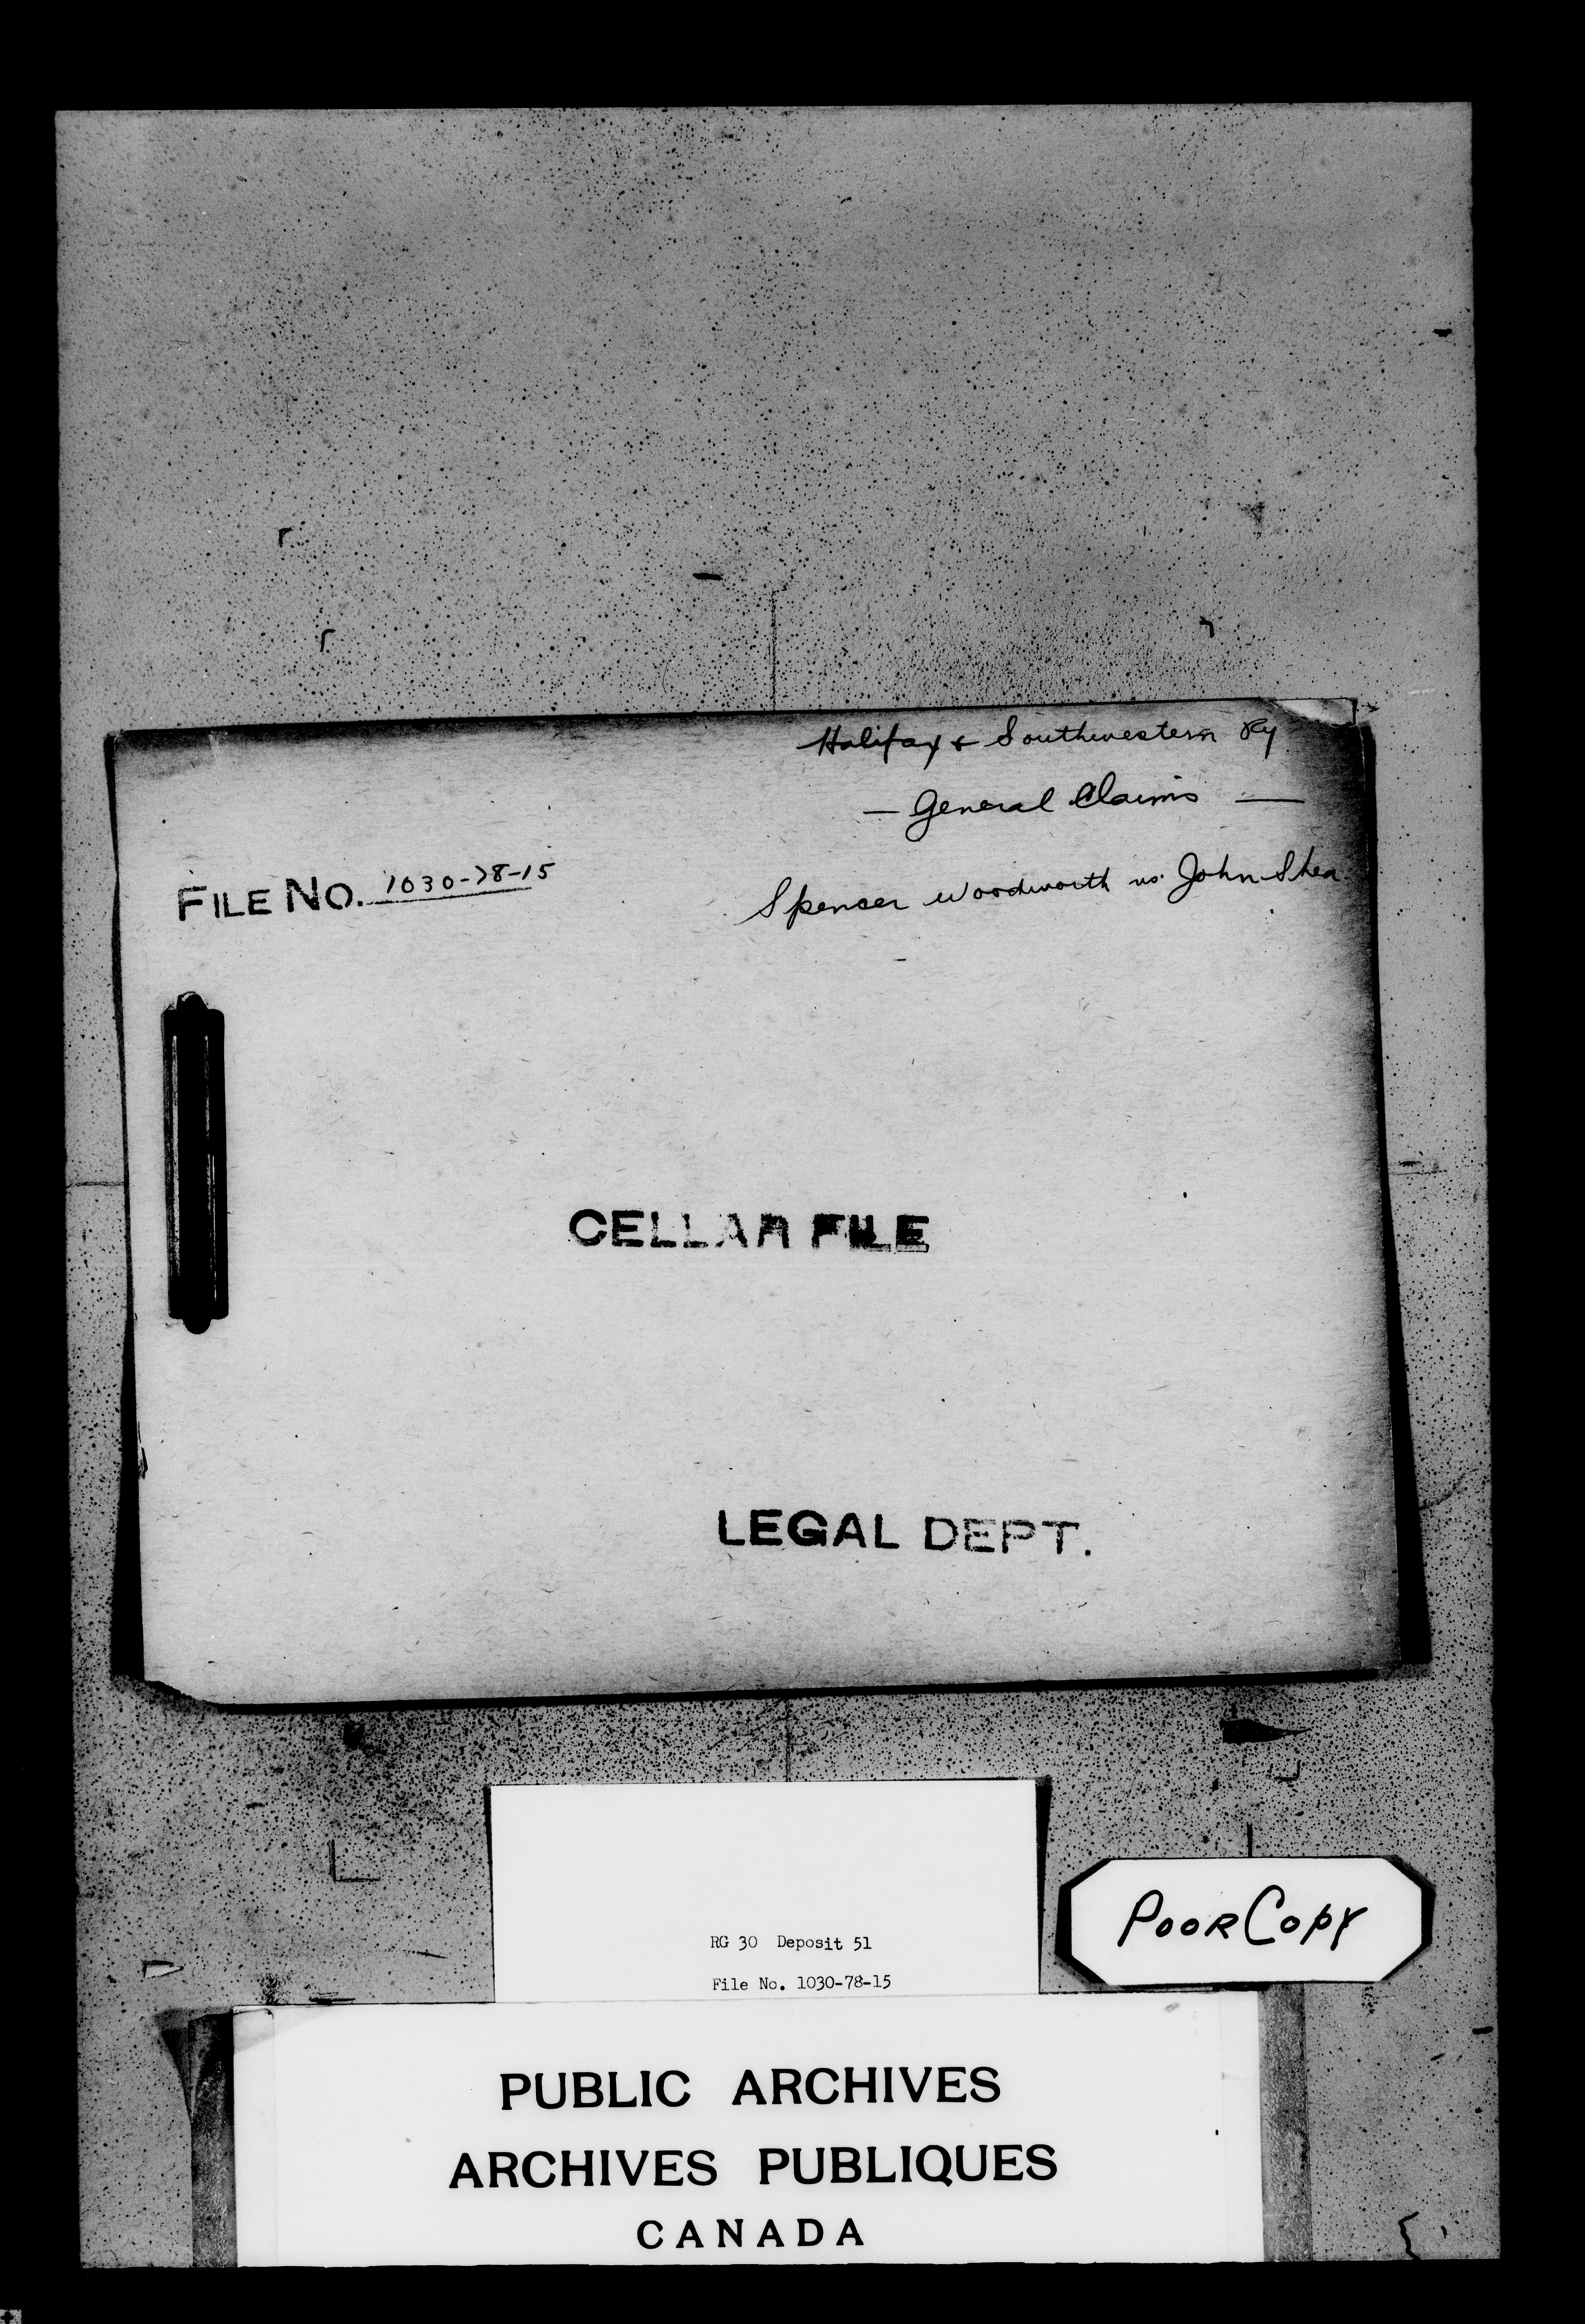 Halifax & Southwestern Ry
— General Claims —
FILE NO. 1030-78-15
Spencer Woodworth vs. John Shea
CELLAR FILE
LEGAL DEPT.
POOR COPY
RG 30 Deposit 51
File No. 1030-78-15
PUBLIC ARCHIVES
ARCHIVES PUBLIQUES
CANADA